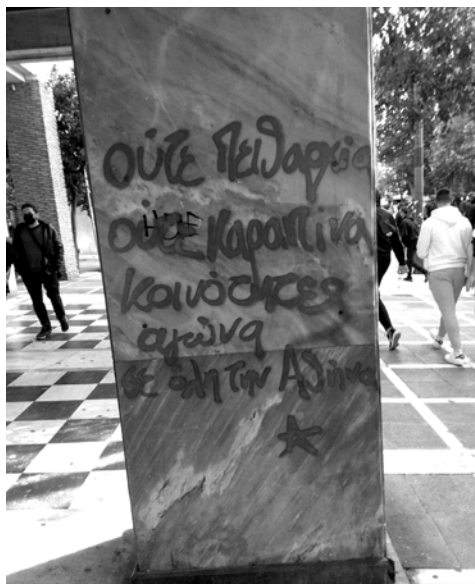 ούτε Πειθαρχία
ούτε Καραντίνα
κοινότητες
αγώνα
σε όλη την Αθήνα